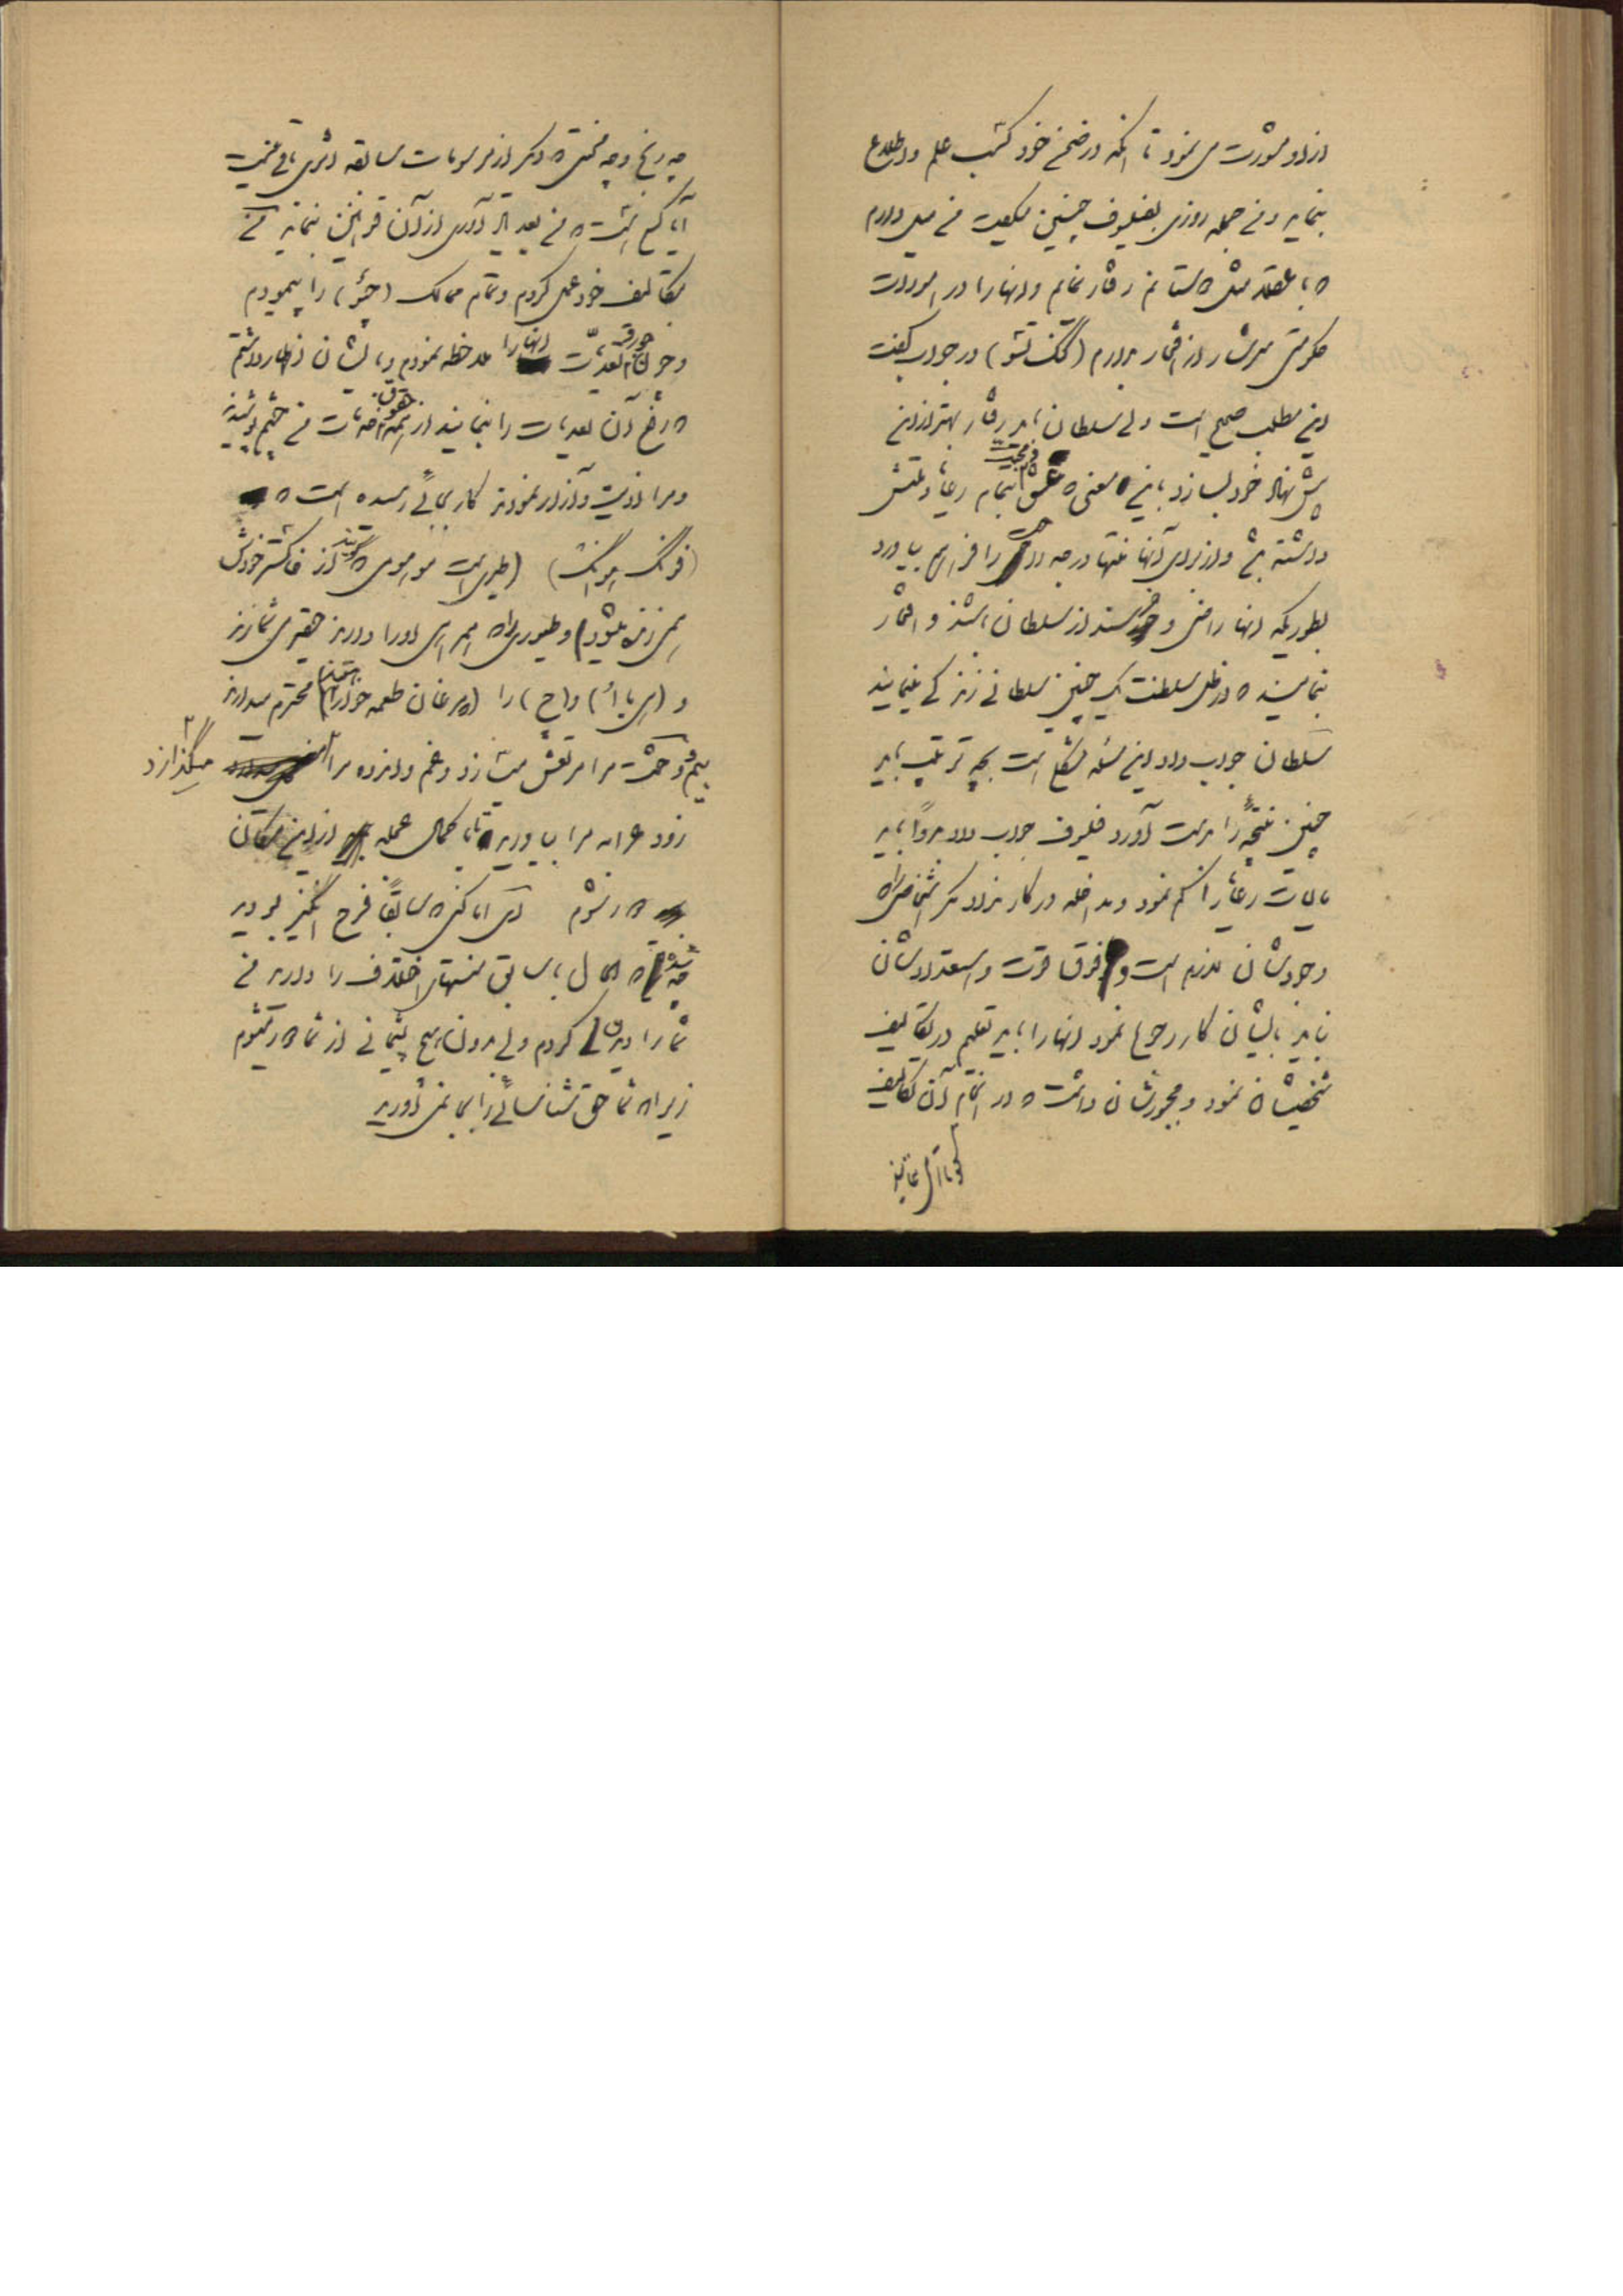 از او مشورت می نمود تا آنکه در ضمن خود کسب علم و اطلاع
بنماید و من جمله روزی بفیلسوف چنین میگفت من میل دارم
که با عقلا مثل دوستانم رفتار نمایم و آنها را در امورات
حکومتی سرشار از افتخار بدارم (گنگ تسو) در جواب گفت
این مطلب صحیح است ولی سلطان باید رفتار بهتر از این
پیش نهاد خود بسازد باین معنی که عشق و محبت بتمام رعایا و ملتش
داشته باشد و از برای آنها منتها درجه را فراهم بیاورد
بطوریکه آنها راضی و خورسند از سلطان باشند و افتخار
بنمایند که در ظل سلطنت یک چنین سلطانی زندگی مینمایند
سلطان جواب داد این مسئله مشکل است بچه ترتیب باید
چنین نتیجه را بدست آورد فیلسوف جواب داد بدواً باید
مالیات رعایا را کم نمود و مداخله در کار نداد مگر اشخاصی را که
وجودشان لازم است و فوق قوت و استعدادشان
نباید بایشان کار رجوع نمود آنها را باید تعلیم در تکالیف
شخصیشان نمود و مجبورشان داشت که در انجام آن تکالیف
چه رنج و چه محنتی که دیگر از مرسومات سابقه اثری باقی نیست
آیا کسی هست که من بعد یاد آوری از آن قوانین بنماید من
بتکالیف خود عمل کردم و تمام ممالک (چئو) را پیمودم
و جور و تعدیات آنها را ملاحظه نمودم و بایشان اظهار داشتم
که رفع آن تعدیات را بنمایند از حقوق من چشم پوشیدند
و مرا اذیت و آزار نمودند کار بجائی رسیده است که
(فونگ هونگ) (طیری است موهومی که گویند از خاکستر خودش
زنده میشود) و طیوری که همراهی او را دارند حقیر می شمارند
و () را (که مرغان طعمه خوارند) محترم میدارند
بیم و وحشت مرا مرتعش میسازد و غم و اندوه مرا میگذازد
زود عرابه مرا بیاورید تا با کمال عجله از این مکان
دور شوم ای اماکنی که سابقاً فرح انگیز بودید
چه شده که الحال با سابق منتهای اختلاف را دارید من
شما را کردم ولی بدون هیچ پشیمانی از شما دور میشوم
زیرا که شما حق شناسائی را بجا نمی آورید